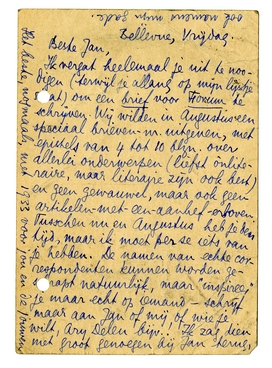 ook namens mijn gade.
Bellevue, Vrijdag.
Beste Jan,
Ik vergat heelemaal je uit te noo-
digen (terwijl je allang op mijn lijstje
zat) om een brief voor Forum te
schrijven. Wij willen in Augustus een
speciaal brieven-nr. uitgeven, met
epistels van 4 tot 10 blzn. over
allerlei onderwerpen (liefst onlite-
raire, maar literaire zijn ook best)
en geen gewauwel, maar ook geen
artikelen-met-een-aanhef-erboven.
Tusschen nu en Augustus heb je den
tijd, maar ik moet per se iets van
je hebben. De namen van echte cor-
respondenten kunnen worden ge-
schrapt natuurlijk, maar inspireer
je maar echt op iemand – schrijf
maar aan Jan of mij, of wie je
wilt, Ary Delen bijv. Ik zag dien
met groot genoegen bij Jan terug,
Het beste, nogmaals, met 1933 voor jou en de jouwen